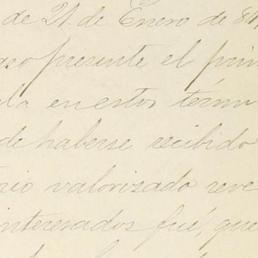 de 21. de Enero de 81
aso presente el prim
la en estos térm
de haberse recibido
rio valorizado reve
interesados fué, que